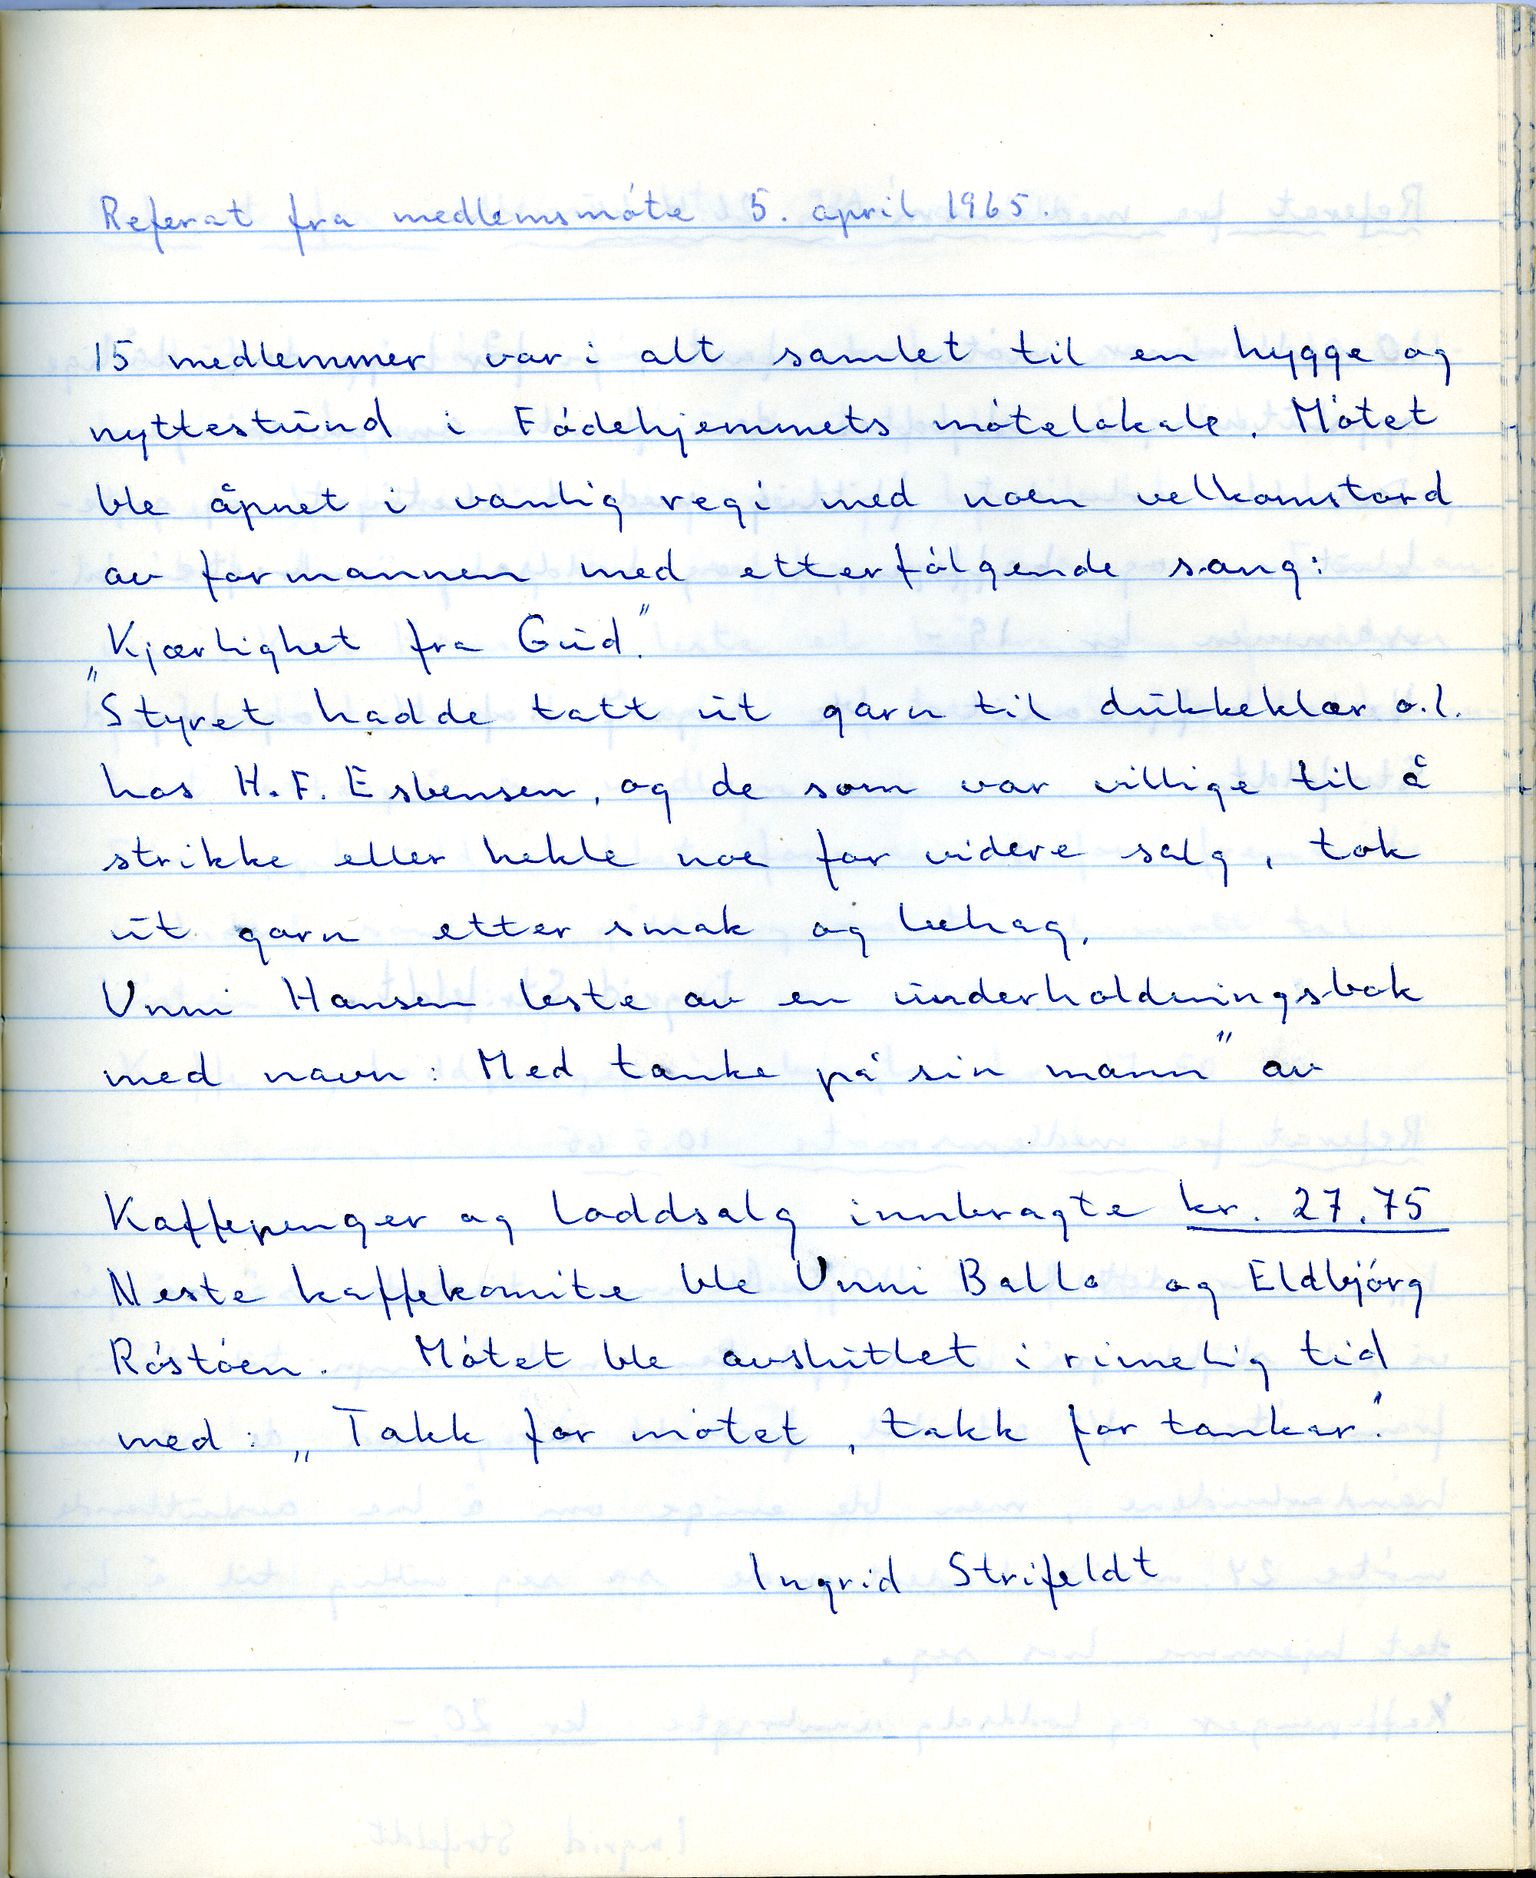 Referat fra medlemsmóte 5. april 1965.
15 medlemmer var i alt samlet til en hygge og
nyttestund i Fódehjemmets mótelokale. Mótet
ble åpnet i vanlig regi med noen velkomstord
av formannen med etterfólgende sang:
„Kjærlighet fra Gud."
Styret hadde tatt ut garn til dukkeklær o.l.
hos H.F. Esbensen, og de som var villige til å
strikke eller hekle noe for videre salg, tok
ut garn etter smak og behag.
Unni Hansen leste av en underholdningsbok
med navn: Med tanke på sin mann" av
Kaffepenger og loddsalg innbragte kr. 27.75
Neste kaffekomite ble Unni Ballo og Eldbjórg
Róstóen. Mótet ble avsluttet i rimelig tid
med: „Takk for mótet, takk for tankar."
Ingrid Strifeldt